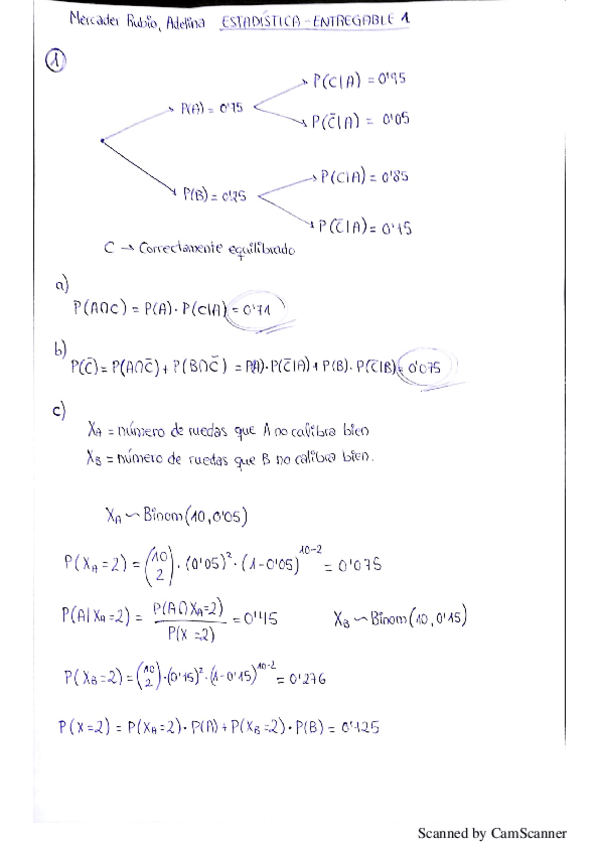 Mercader Rubio, Adelina ESTADÍSTICA - ENTREGABLE 1
1
P(C|A) = 0'95
P(A) = 0'75
P(C̄|A) = 0'05
P(C|A) = 0'85
P(B) = 0'25
P(C̄|A) = 0'15
C → Correctamente equilibrado
a)
P(A∩C) = P(A) · P(C|A) = 0'71
b)
P(C̄) = P(A∩C̄) + P(B∩C̄) = P(A)·P(C̄|A) + P(B)·P(C̄|B) = 0'075
c)
X_A = número de ruedas que A no calibra bien
X_B = número de ruedas que B no calibra bien.
X_A ~ Binom(10,0'05)
P(X_A=2) = (10 2) · (0'05)² · (1-0'05)^10-2 = 0'075
P(A|X_A=2) = P(A∩X_A=2) / P(X=2) = 0'45 X_B ~ Binom(10,0'15)
P(X_B=2) = (10 2)·(0'15)²·(1-0'15)^10-2 = 0'276
P(X=2) = P(X_A=2)· P(A) + P(X_B=2)· P(B) = 0'125
Scanned by CamScanner